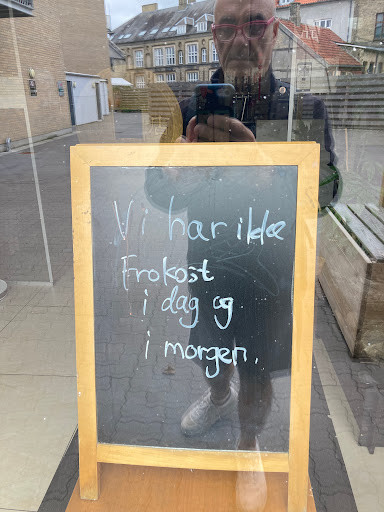 Vi har ikke
Frokost
i dag og
i morgen.